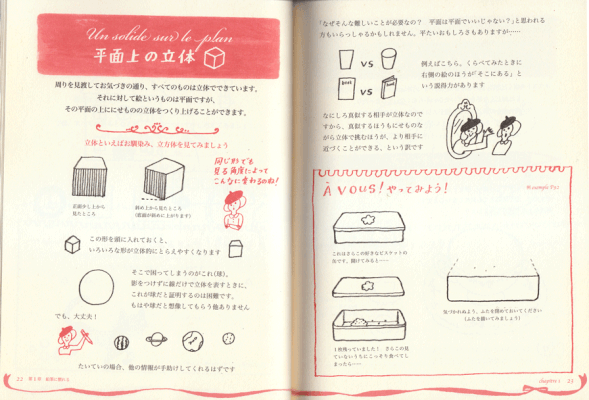 Un solide sur le plan
平面上の立体
周りを見渡してお気づきの通り、すべてのものは立体でできています。
それに対して絵というものは平面ですが、
その平面の上ににせものの立体をつくり上げることができます。
立体といえばお馴染み、立方体を見てみましょう
正面少し上から
見たところ
斜め上から見たところ
(底面が斜めに上がります)
同じ形でも
見る角度によって
こんなに変わるのね!
この形を頭に入れておくと、
いろいろな形が立体的にとらえやすくなります
そこで困ってしまうのがこれ(球)。
影をつけずに線だけで立体を表すときに、
これが球だと証明するのは困難です。
もはや球だと想像してもらう他ありません
でも、大丈夫!
たいていの場合、他の情報が手助けしてくれるはずです
22
「なぜそんな難しいことが必要なの? 平面は平面でいいじゃない?」と思われる
方もいらっしゃるかもしれません。平たいおもしろさもありますが……
VS
VS
例えばこちら。くらべてみたときに
右側の絵のほうが「そこにある」と
いう説得力があります
なにしろ真似する相手が立体なので
すから、真似するほうもにせものな
がら立体で挑むほうが、より相手に
近づくことができる、という訳です
À VOUS! やってみよう!
これはさらこの好きなビスケットの
缶です。開けてみると……
1枚残っていました! さらこの見
ていないうちにこっそり食べてし
まったら……
気づかれぬよう、ふたを閉めておいてください
(ふたを描いてみましょう)
chapitre 1
23